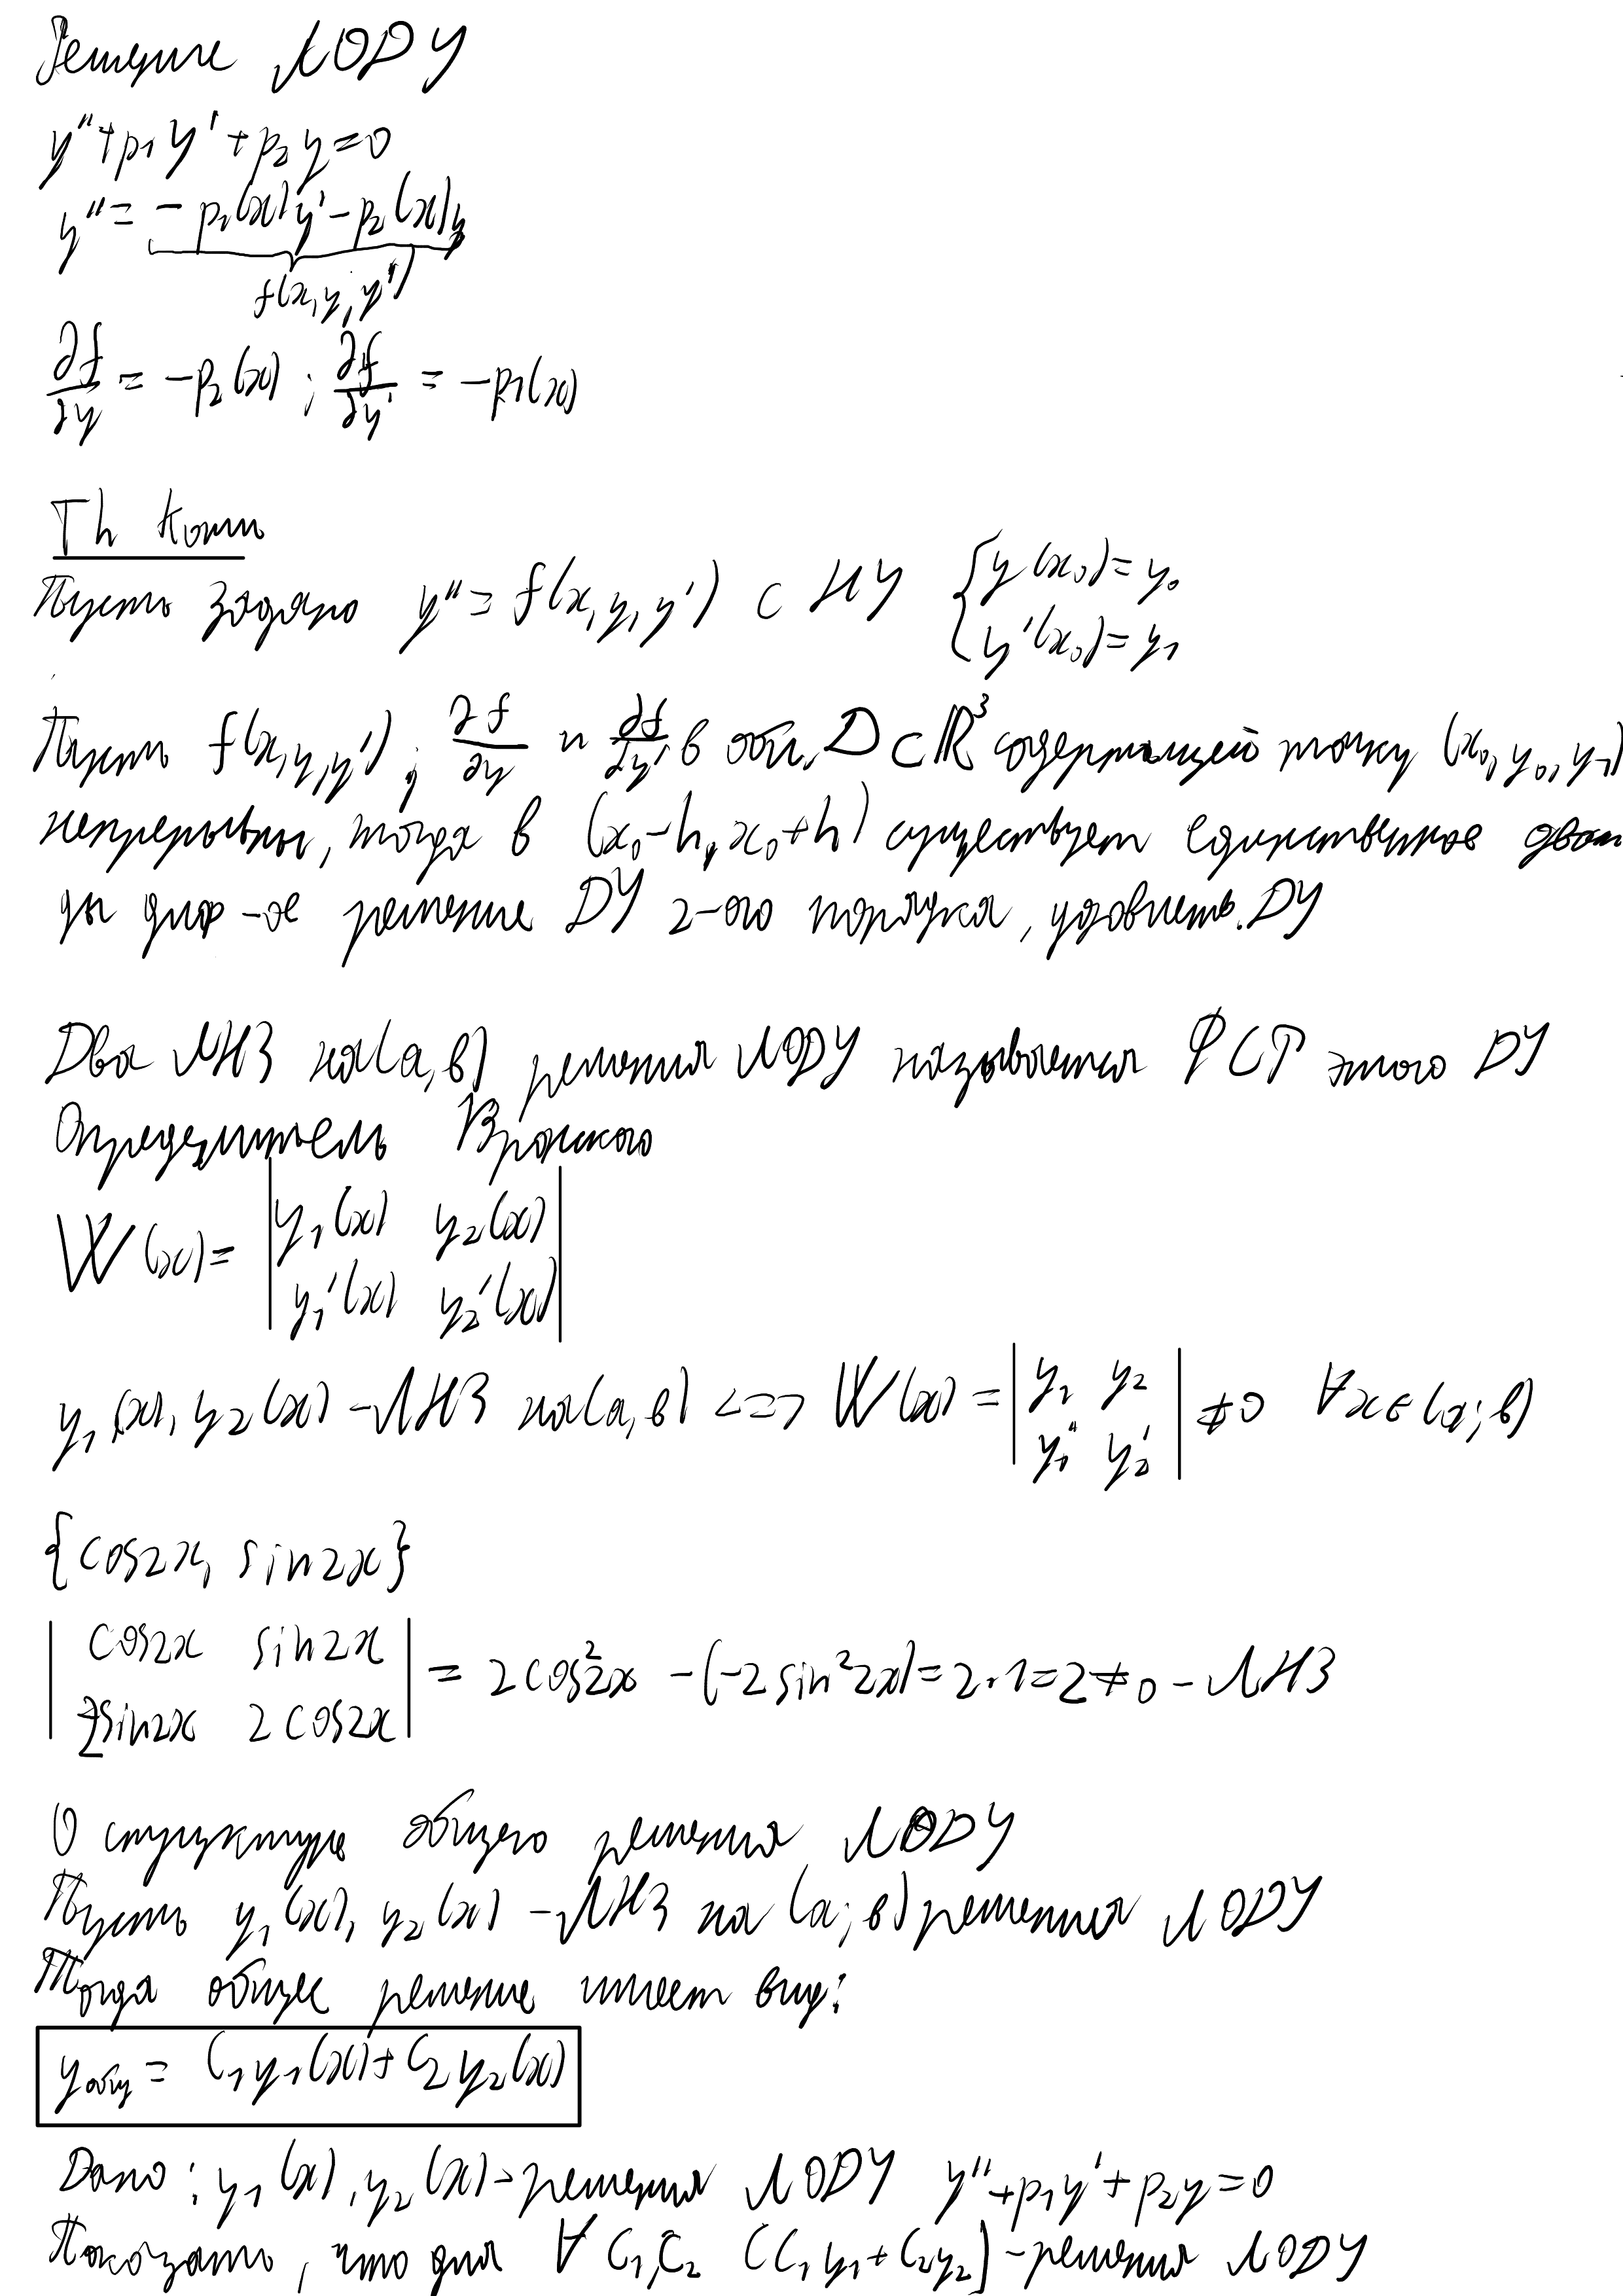 Решение ЛОДУ
y'' + p₁y' + p₂y = 0
y'' = - p₁(x)y' - p₂(x)y
f(x, y, y')
∂f/∂y = -p₂(x) ; ∂f/∂y' = -p₁(x)
Th Коши
Пусть задано y'' = f(x, y, y') с НУ { y(x₀) = y₀
{ y'(x₀) = y₁
Пусть f(x, y, y') ; ∂f/∂y и ∂f/∂y' в обл. D ⊂ ℝ³ содержащей точку (x₀, y₀, y₁)
непрерывны, тогда в (x₀-h, x₀+h) существует единственное дваж
ды диф-ое решение ДУ 2-ого порядка, удовлетв. ДУ
Два ЛНЗ на (a, b) решения ЛОДУ называется ФСР этого ДУ
Определитель Вронского
W(x) = | y₁(x) y₂(x) |
| y₁'(x) y₂'(x) |
y₁(x), y₂(x) - ЛНЗ на (a, b) <=> W(x) = | y₁ y₂ | ≠ 0 ∀x ∈ (a; b)
| y₁' y₂' |
{cos2x, sin2x}
| cos2x sin2x | = 2cos²2x - (-2sin²2x) = 2·1 = 2 ≠ 0 - ЛНЗ
| -2sin2x 2cos2x |
О структуре общего решения ЛОДУ
Пусть y₁(x), y₂(x) - ЛНЗ на (a; b) решения ЛОДУ
Тогда общее решение имеет вид:
yобщ = C₁y₁(x) + C₂y₂(x)
Дано: y₁(x), y₂(x) - решения ЛОДУ y'' + p₁y' + p₂y = 0
Показать, что для ∀ C₁, C₂ (C₁y₁ + C₂y₂) - решения ЛОДУ